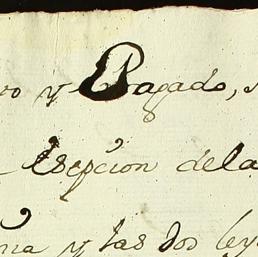 y Pagado,
Esepcion dela
y las dos ley